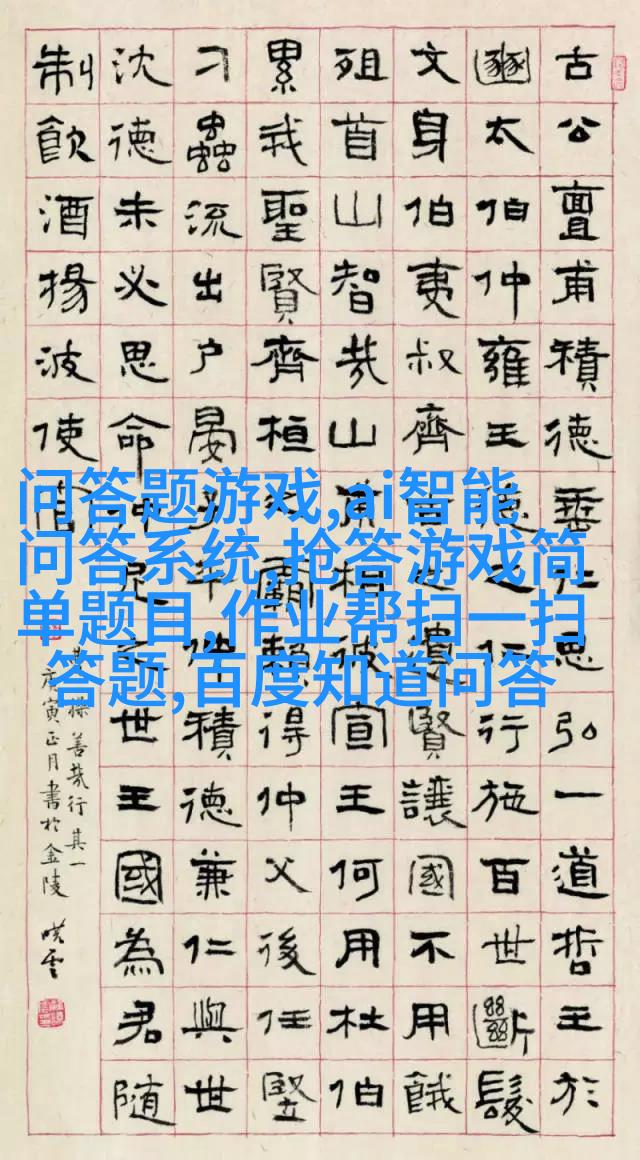 古公亶甫積德垂仁思弘一道哲王於
豳太伯仲雍王德之仁行施百世斷髮
文身伯夷叔齊古之遺賢讓國不用餓
殂首山智哉山甫相彼宣王何用杜伯
累我聖賢齊桓之霸賴得仲父後任豎
刁蟲流出戶晏子平仲積德兼仁與世
沈德未必思命仲尼之世王國為君隨
制飲酒揚波使官
操善哉行其一
庚寅正月書於金陵
问答题游戏,ai智能
问答系统,抢答游戏简
单题目,作业帮扫一扫
答题,百度知道问答